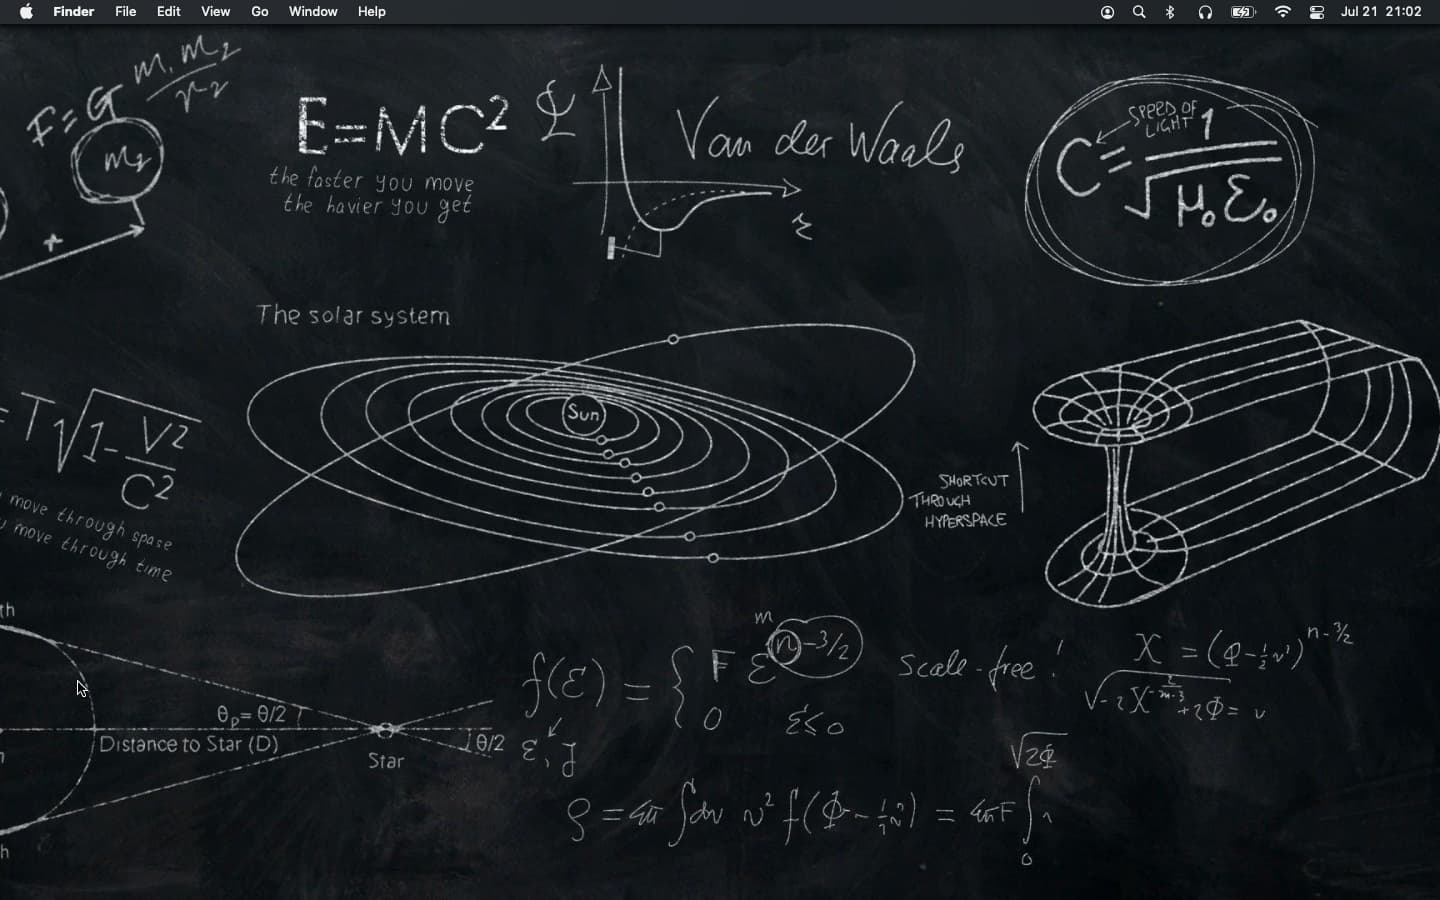 Finder File Edit View Go Window Help Jul 21 21:02
F=G m₁m₂
r²
m₂
E=MC²
the faster you move
the havier you get
Van der Waals
SPEED OF
LIGHT
C= 1
√μ₀ε₀
The solar system
Sun
=T√1-V²
C²
move through spase
move through time
SHORTCUT
THROUGH
HYPERSPACE
th
θp= θ/2
Distance to Star (D)
θ/2
Star
m
f(ε) = { F ε n-3/2
0 ε≤0
Scale-free!
ε, J
n-3/2
√2Φ
0
h